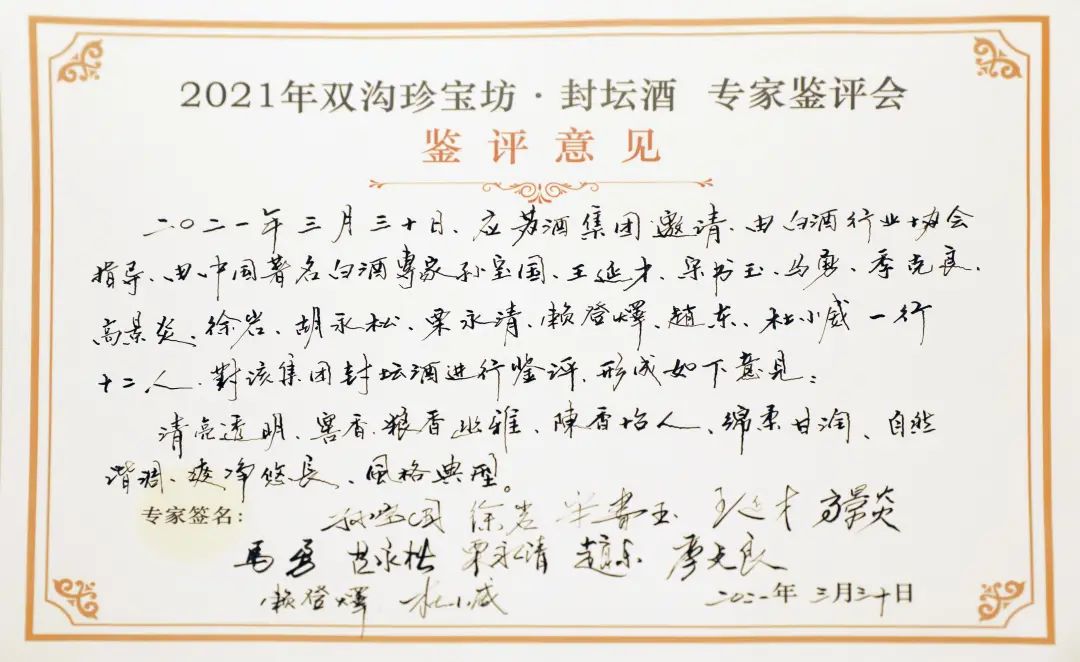 2021年双沟珍宝坊·封坛酒 专家鉴评会
鉴评意见
二〇二一年三月三十日、应苏酒集团邀请、由白酒行业协会
指导、由中国著名白酒專家孙宝国、王延才、宋书玉、马勇、季克良、
高景炎、徐岩、胡永松、栗永清、赖登燡、趙东、杜小威一行
十二人、對该集团封坛酒进行鉴评、形成如下意见:
清亮透明、窖香、粮香幽雅、陳香怡人、绵柔甘润、自然
谐调、爽净悠長、風格典型。
专家签名:
孙宝国 徐岩 宋書玉 王延才 高景炎
马勇 胡永松 栗永清 趙东 季克良
赖登燡 杜小威
二〇二一年三月三十日